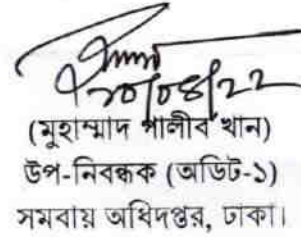 ২০/০৪/২২
(মুহাম্মাদ গালীব খান)
উপ-নিবন্ধক (অডিট-১)
সমবায় অধিদপ্তর, ঢাকা।